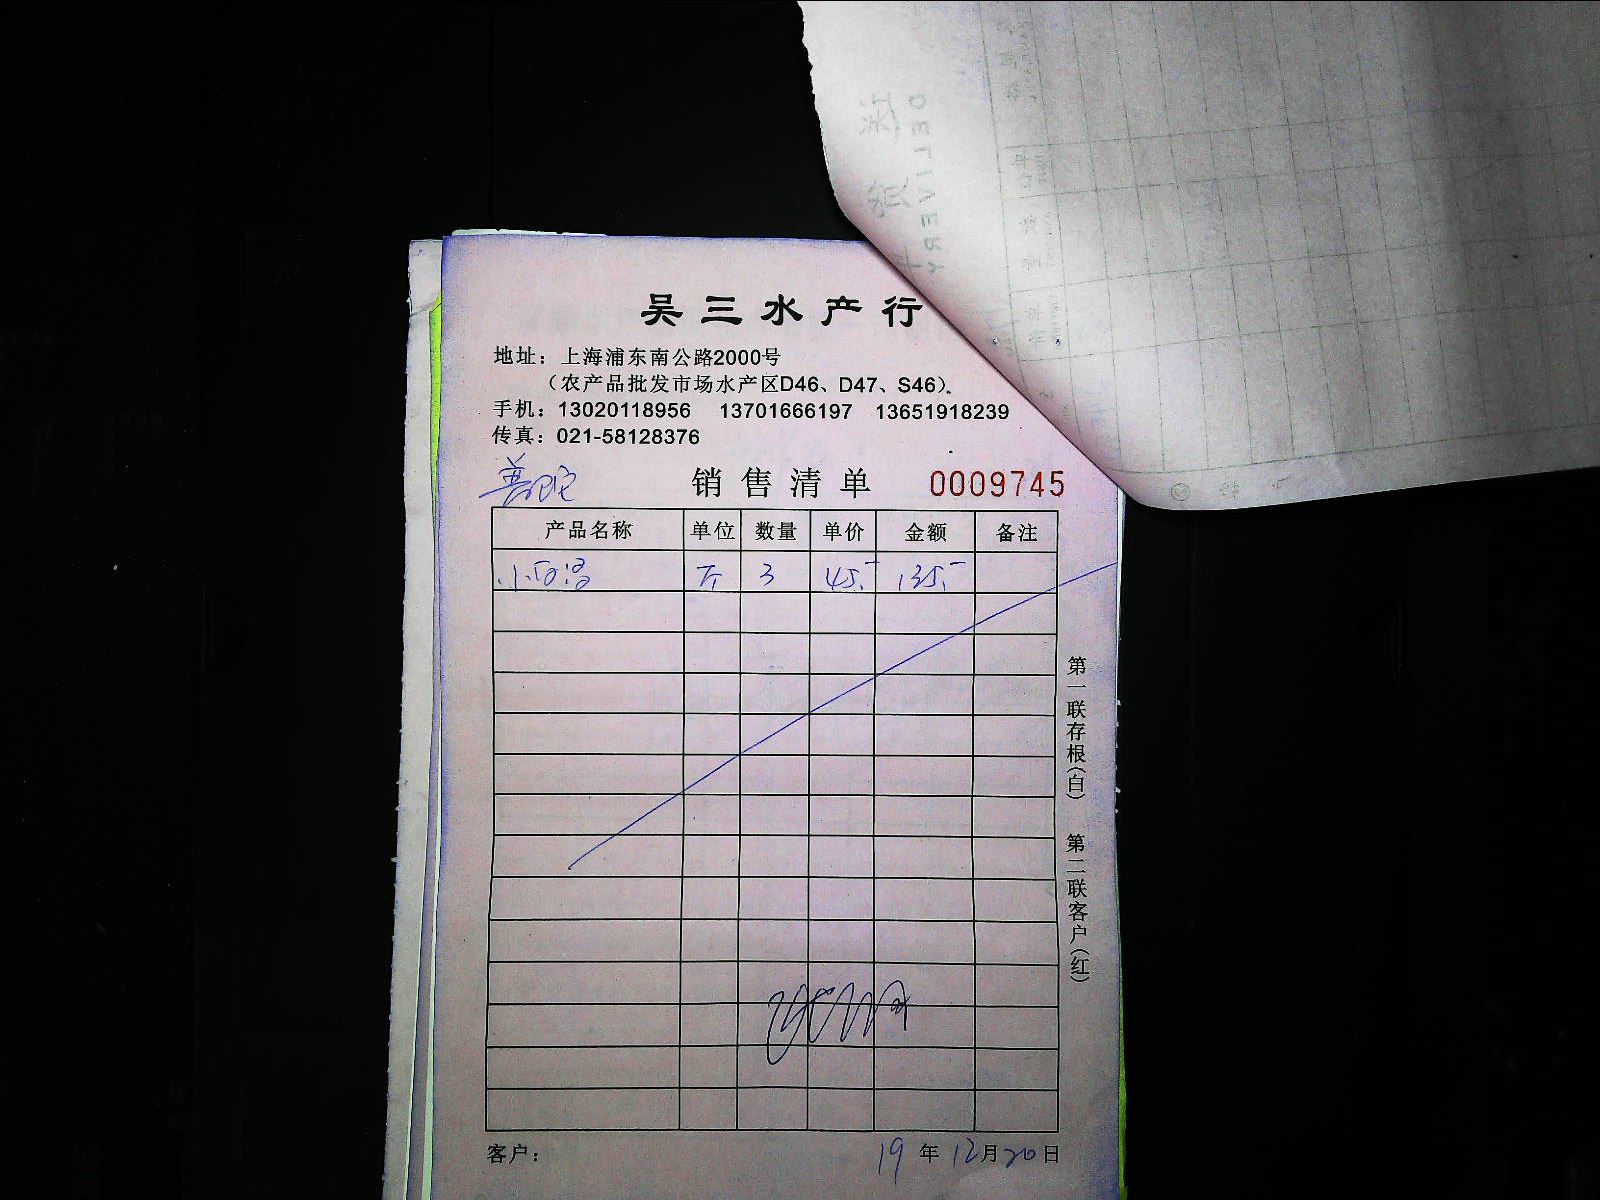 吴三水产行
地址：上海浦东南公路2000号
（农产品批发市场水产区D46、D47、S46）。
手机：13020118956 13701666197 13651918239
传真：021-58128376
普陀 销售清单 0009745
产品名称 单位 数量 单价 金额 备注
斤 3 45.- 135.-
第一联存根（白） 第二联客户（红）
客户： 19年12月20日
DELIVERY